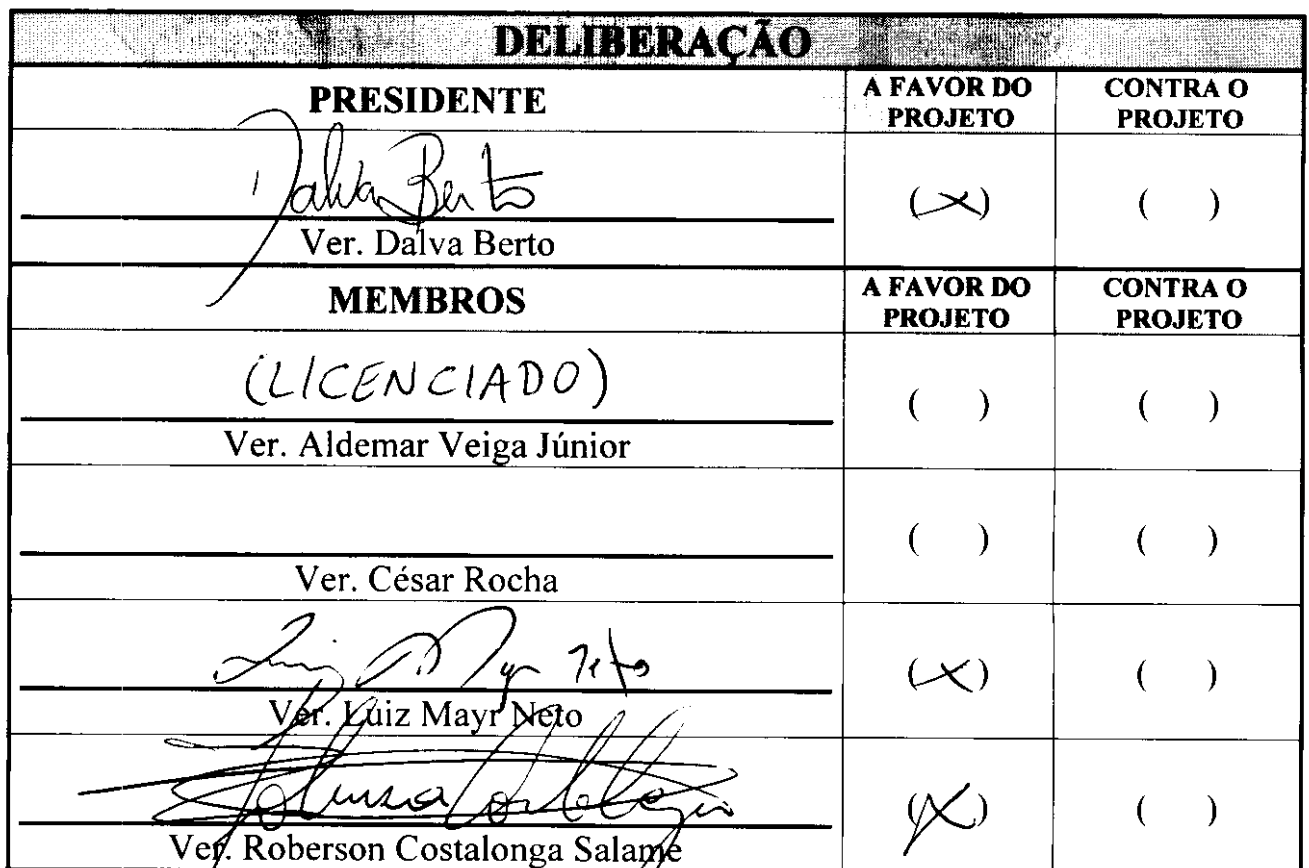 DELIBERAÇÃO
PRESIDENTE
A FAVOR DO PROJETO
CONTRA O PROJETO
Dalva Berto
(X)
( )
Ver. Dalva Berto
MEMBROS
A FAVOR DO PROJETO
CONTRA O PROJETO
(LICENCIADO)
( )
( )
Ver. Aldemar Veiga Júnior
( )
( )
Ver. César Rocha
Luiz Mayr Neto
(X)
( )
Ver. Luiz Mayr Neto
(X)
( )
Ver. Roberson Costalonga Salame